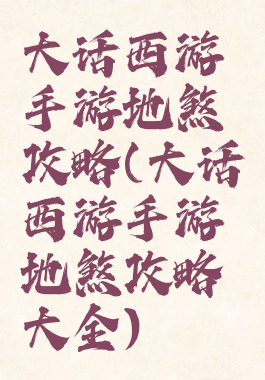 大话西游
手游地煞
攻略(大话
西游手游
地煞攻略
大全)